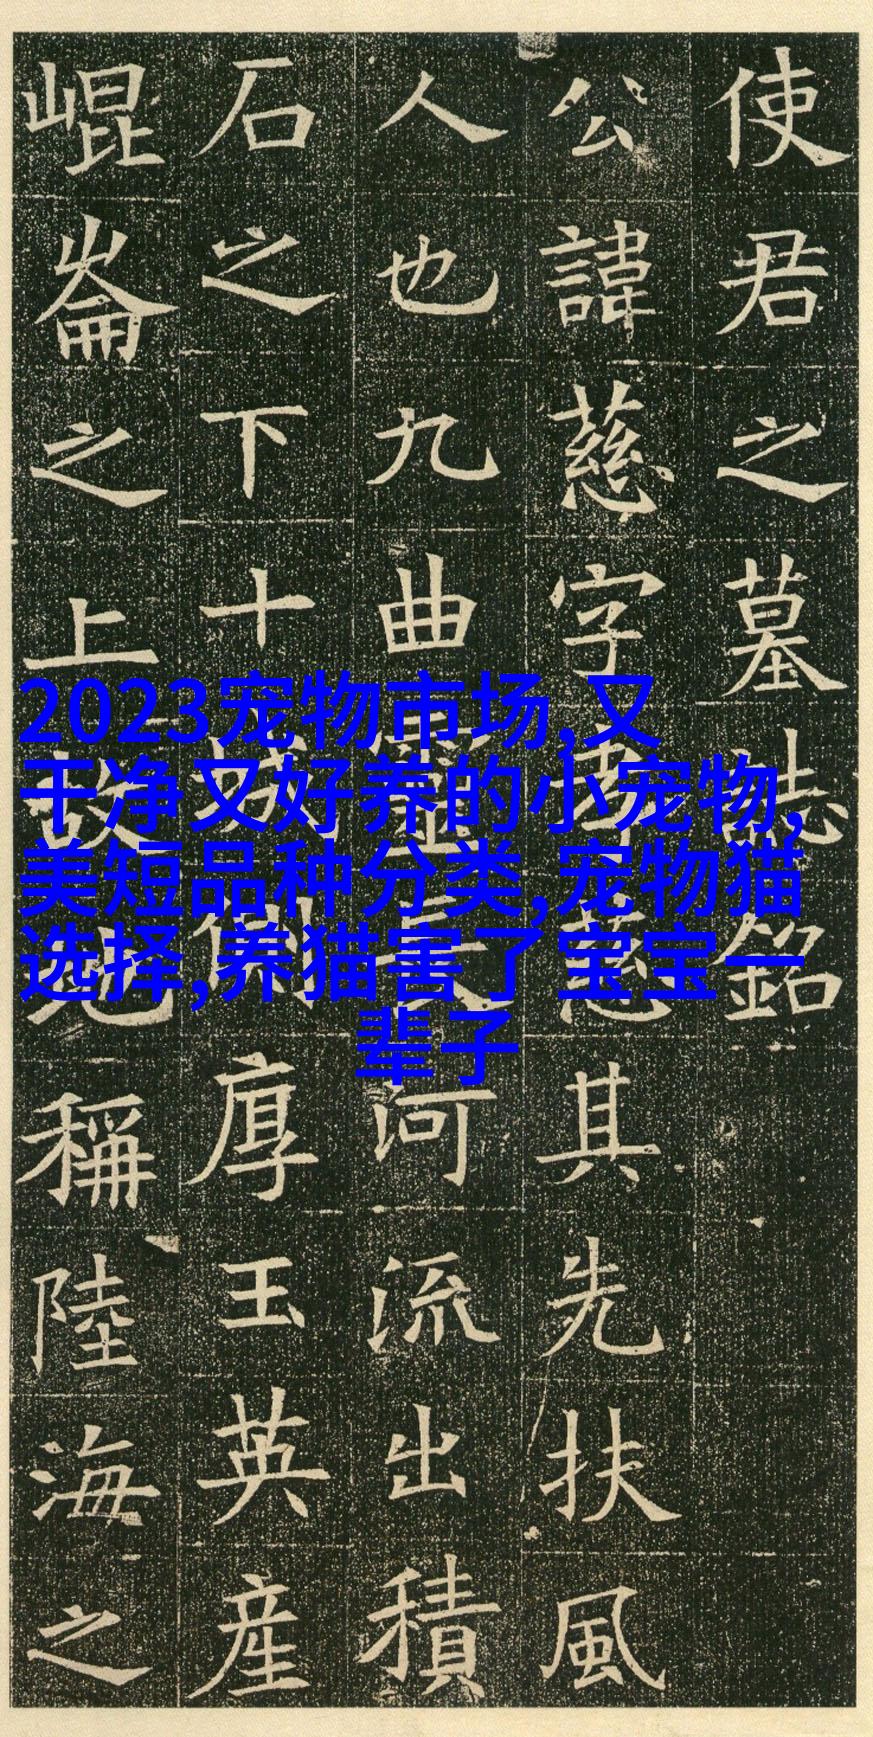 使君之墓誌銘
公諱慈字孝慈其先扶風
人也九曲靈長河流出積
石之下十城側厚王英産
崐崙之上故地稱陸海之
2023宠物市场,又
干净又好养的小宠物,
美短品种分类,宠物猫
选择,养猫害了宝宝一
辈子